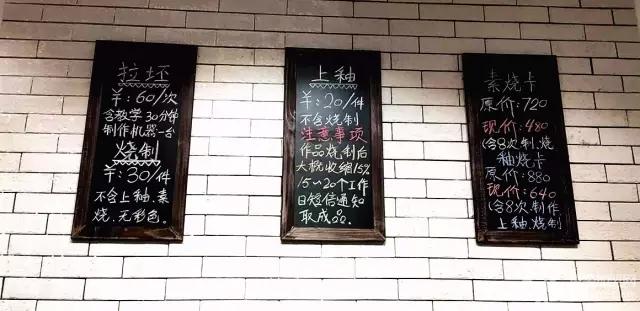 拉坯
¥:60/次
含教学30分钟
制作机器一台
烧制
¥:30/件
不含上釉、素
烧、无彩色。
上釉
¥:20/件
不含烧制
注意事项
作品烧制后
大概收缩15%
15~20个工作
日短信通知
取成品。
素烧卡
原价:720
现价:480
(含8次制、烧
釉烧卡
原价:880
现价:640
(含8次制作
上釉、烧制